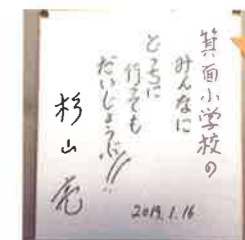 箕面小学校の
みんなに
どこに
行っても
だいじょうぶ!!
杉山
亮
2019.1.16